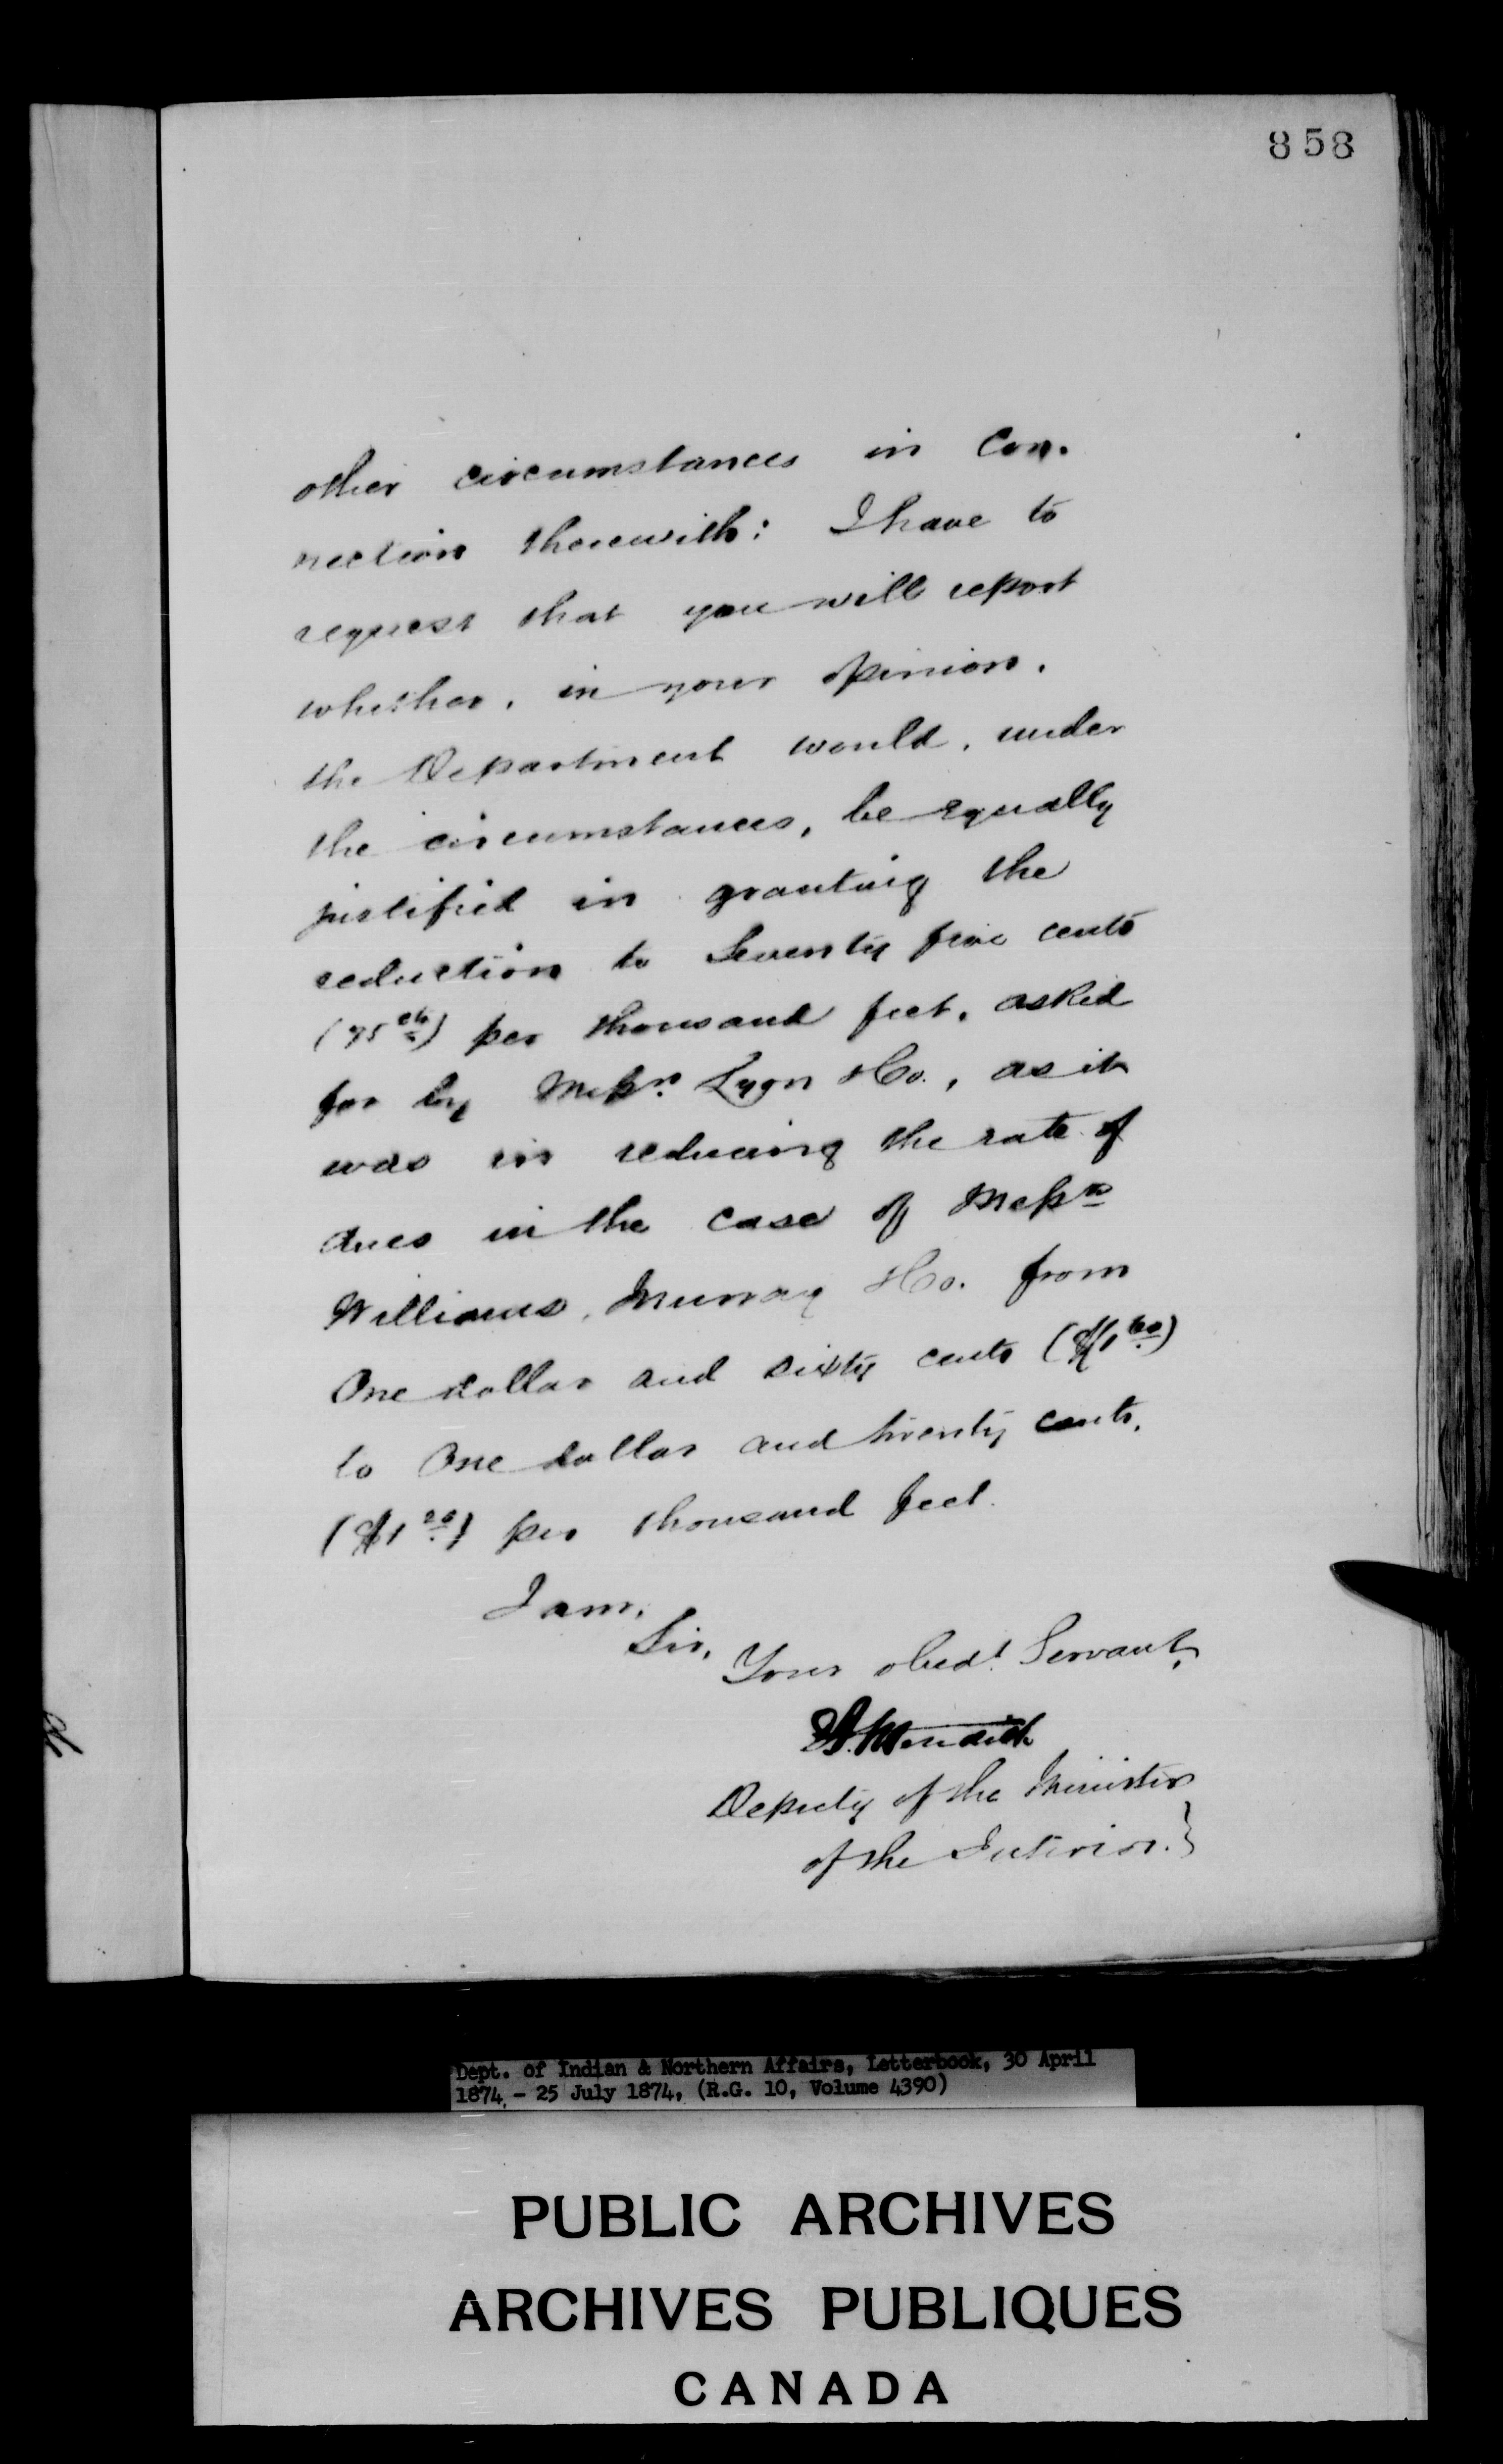 858
other circumstances in Con-
nection therewith: I have to
request that you will report
whether, in your opinion,
the Department would, under
the circumstances, be equally
justified in granting the
reduction to Seventy five cents
(75 cts) per thousand feet, asked
for by Messrs. Lyon & Co., as it
was in reducing the rate of
dues in the case of Messrs
Williams, Murray & Co. from
One dollar and sixty cents ($1.60)
to One dollar and twenty cents,
($1.20) per thousand feet.
I am,
Sir,
Your obedt. Servant,
E A Meredith
Deputy of the Minister
of the Interior.}
Dept. of Indian & Northern Affairs, Letterbook, 30 April
1874 - 25 July 1874, (R.G. 10, Volume 4390)
PUBLIC ARCHIVES
ARCHIVES PUBLIQUES
CANADA